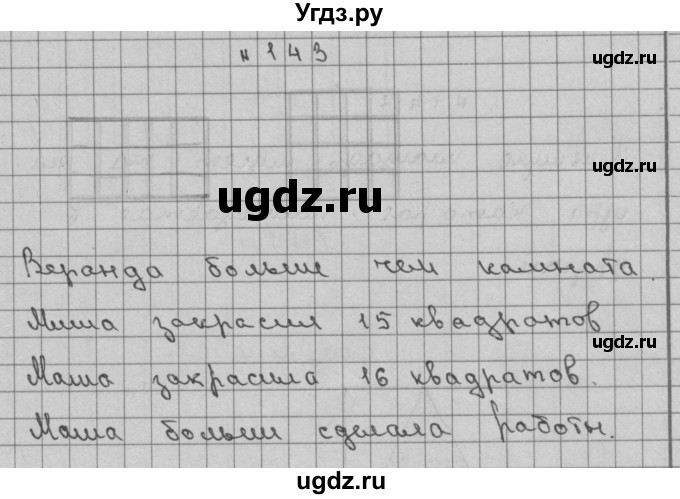 Угдз.ру
№ 143
ugdz.ru
ugdz.ru
ugdz.ru
Веранда больше чем комната.
ugdz.ru
Миша закрасил 15 квадратов
ugdz.ru
Маша закрасила 16 квадратов.
Маша больше сделала работы.
ugdz.ru
ugdz.ru